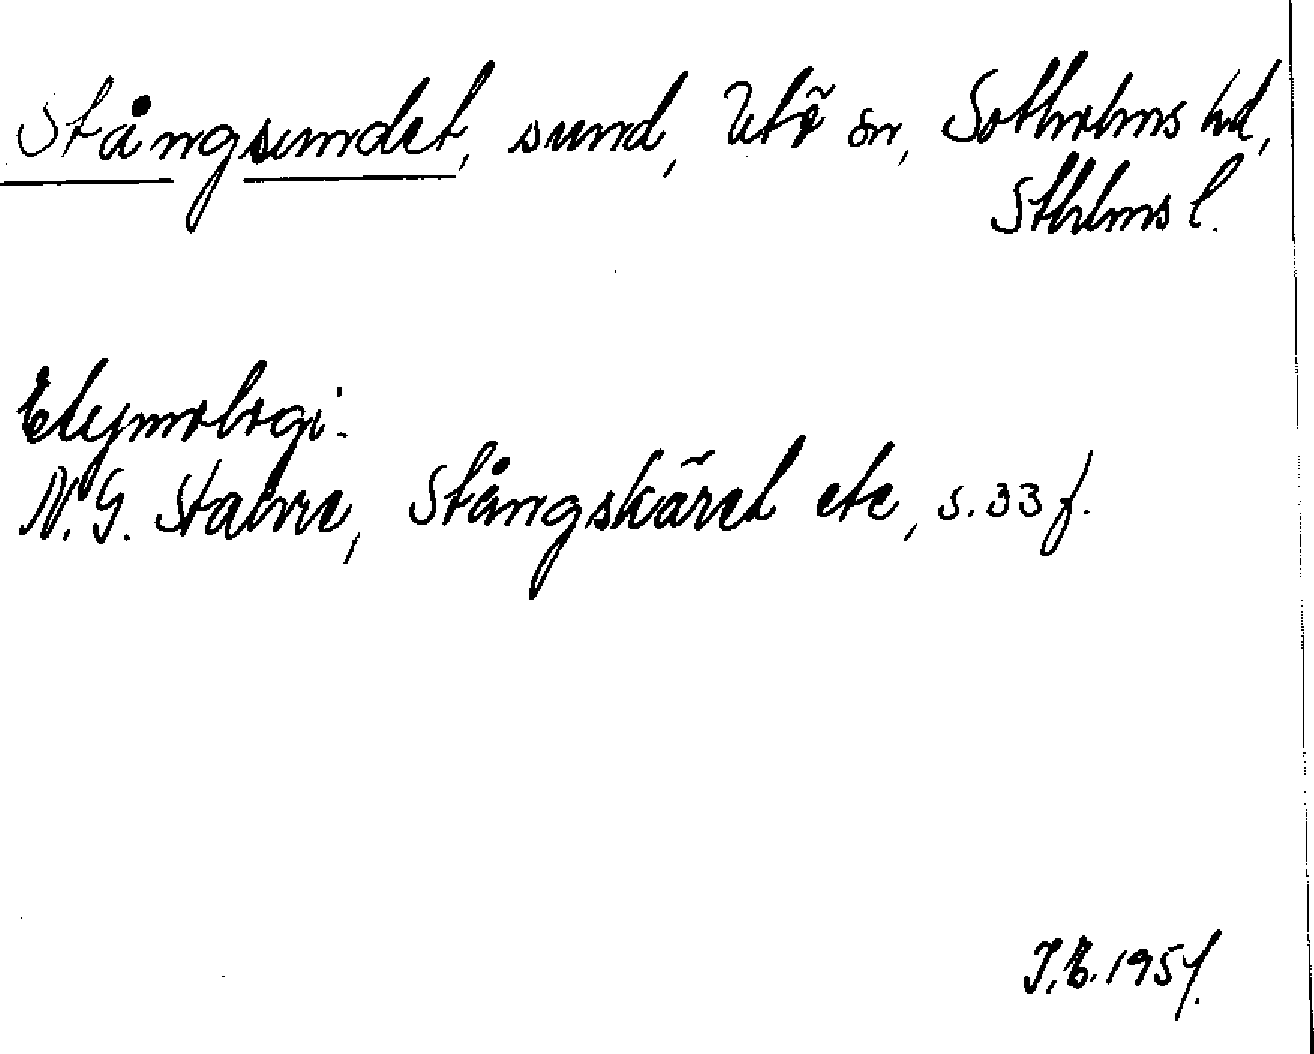 Stångsundet, sund, Utö sn, Sotholms hd,
Sthlms l.
Etymologi:
N.G. Stahre, Stångskäret etc, s. 33 f.
I.E. 1957.